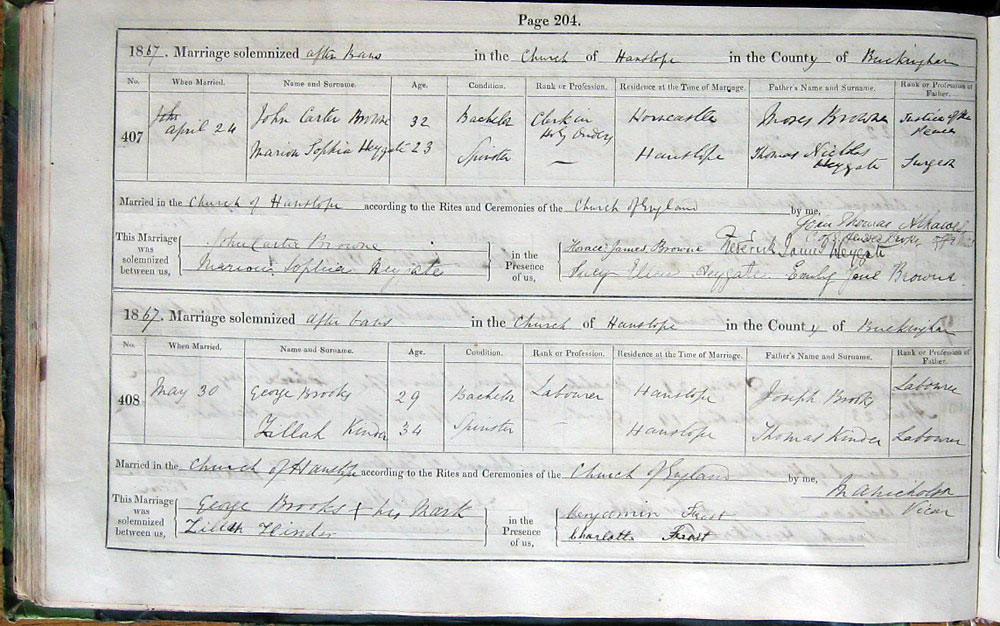 Page 204.
1867. Marriage solemnized after Bans in the Church of Hanslope in the County of Buckingham
No. When Married. Name and Surname. Age. Condition. Rank or Profession. Residence at the Time of Marriage. Father's Name and Surname. Rank or Profession of Father.
407 April 24 John Carter Browne 32 Bachelor Clerk in Holy Orders Horncastle Moses Browne Justice of the Peace
Marion Sophia Heygate 23 Spinster — Hanslope Thomas Heygate Surgeon
Married in the Church of Hanslope according to the Rites and Ceremonies of the Church of England by me, John Thomas
This Marriage was solemnized between us, John Carter Browne in the Presence of us, Horace James Browne Frederick James Heygate
Marion Sophia Heygate Lucy Ellen Heygate Emily Jane Browne
1867. Marriage solemnized after bans in the Church of Hanslope in the County of Buckingham
No. When Married. Name and Surname. Age. Condition. Rank or Profession. Residence at the Time of Marriage. Father's Name and Surname. Rank or Profession of Father.
408 May 30 George Brooks 29 Bachelor Labourer Hanslope Joseph Brooks Labourer
Zillah Kinder 34 Spinster — Hanslope Thomas Kinder Labourer
Married in the Church of Hanslope according to the Rites and Ceremonies of the Church of England by me, M A Nicholson Vicar
This Marriage was solemnized between us, George Brooks X his Mark in the Presence of us, Benjamin Frost
Zillah Kinder Charlotte Frost